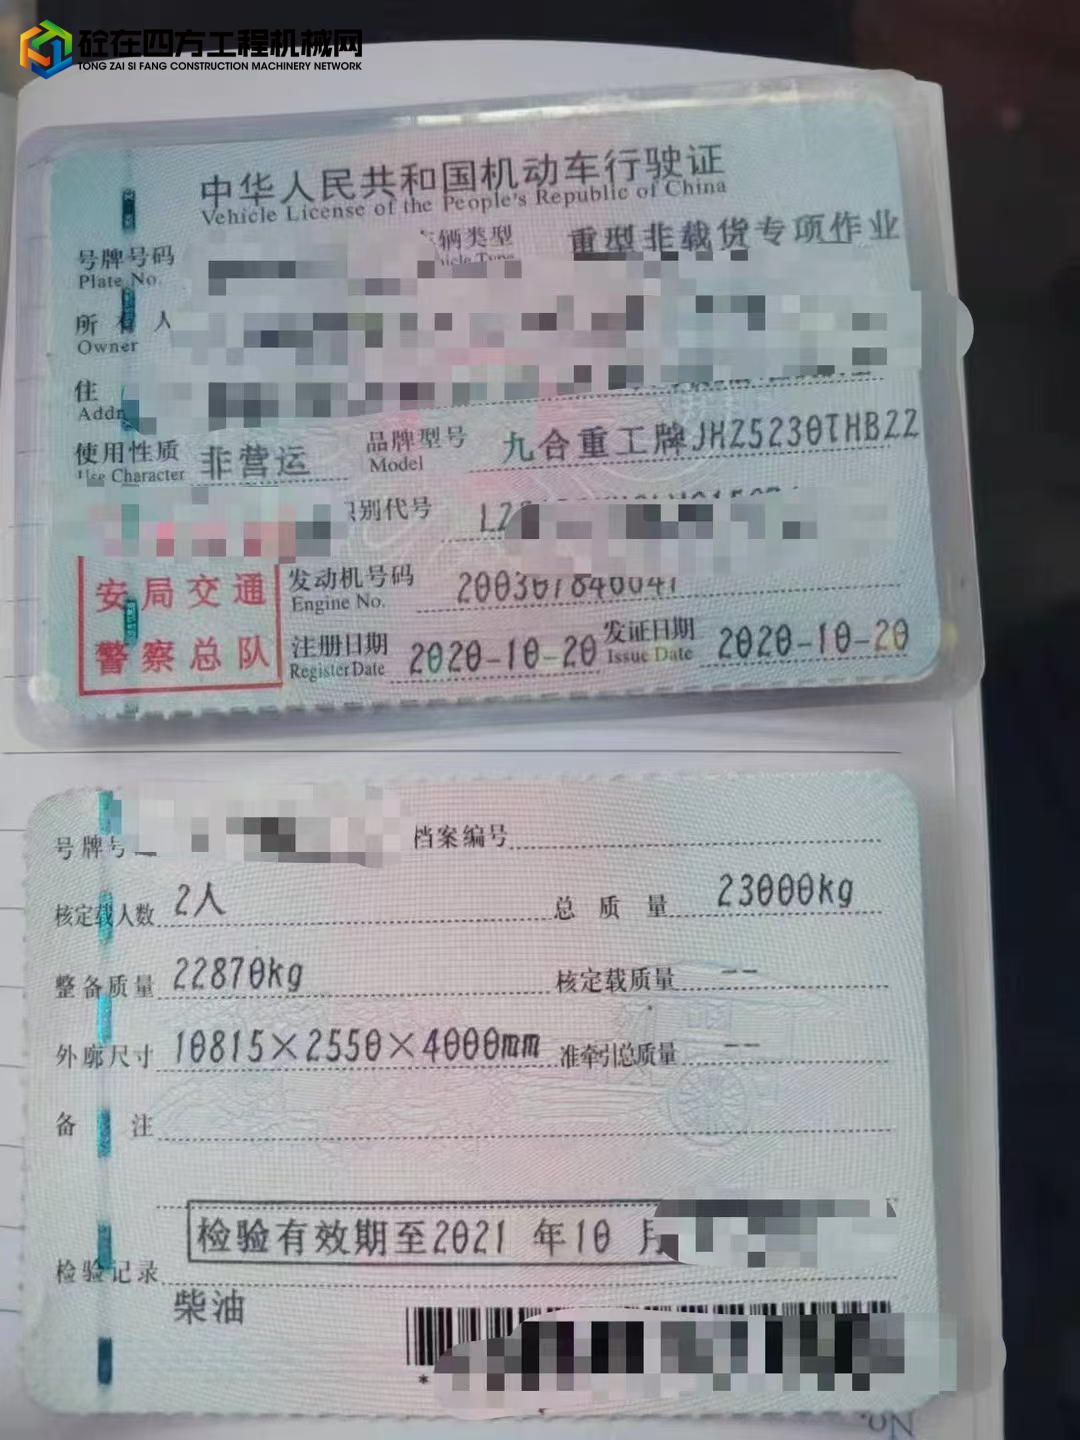 砼在四方工程机械网
TONG ZAI SI FANG CONSTRUCTION MACHINERY NETWORK
中华人民共和国机动车行驶证
Vehicle License of the People's Republic of China
号牌号码 辆类型 重型非载货专项作业
Plate No.
所有人
Owner
住
Addr
使用性质 非营运 品牌型号 九合重工牌JHZ5230THBZZ
Use Character Model
别代号 LZ
安局交通 发动机号码
Engine No.
警察总队 注册日期 2020-10-20 发证日期 2020-10-20
Register Date Issue Date
号牌 档案编号
核定载人数 2人 总质量 23000kg
整备质量 22870kg 核定载质量 --
外廓尺寸 10815×2550×4000mm 准牵引总质量 --
备注
检验有效期至2021年10月
检验记录
柴油
*
No